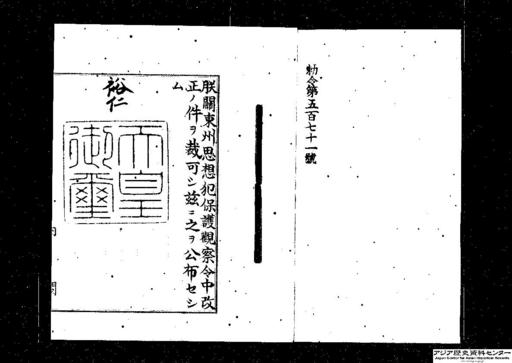 勅令第五百七十一號
朕關東州思想犯保護觀察令中改
正ノ件ヲ裁可シ茲ニ之ヲ公布セシ
ム
裕仁
天皇
御璽
内
閣
アジア歴史資料センター
Japan Center for Asian Historical Records